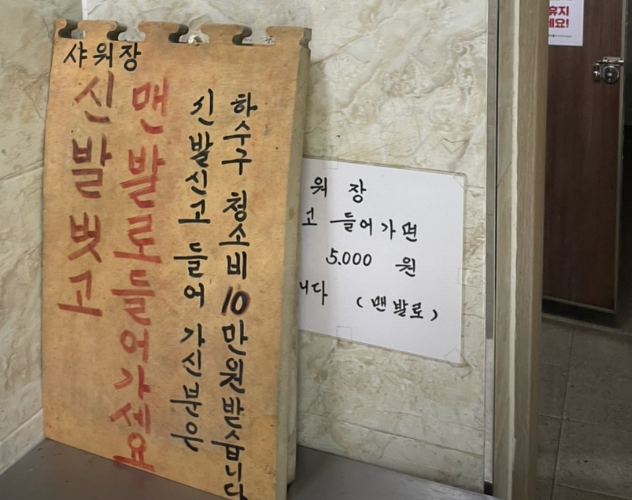 샤워장
신발벗고
맨발로들어가세요
신발신고 들어 가신분은
하수구 청소비 10만원받습니다
워 장
고 들어가면
5,000 원
니다 (맨발로)
유지
세요!